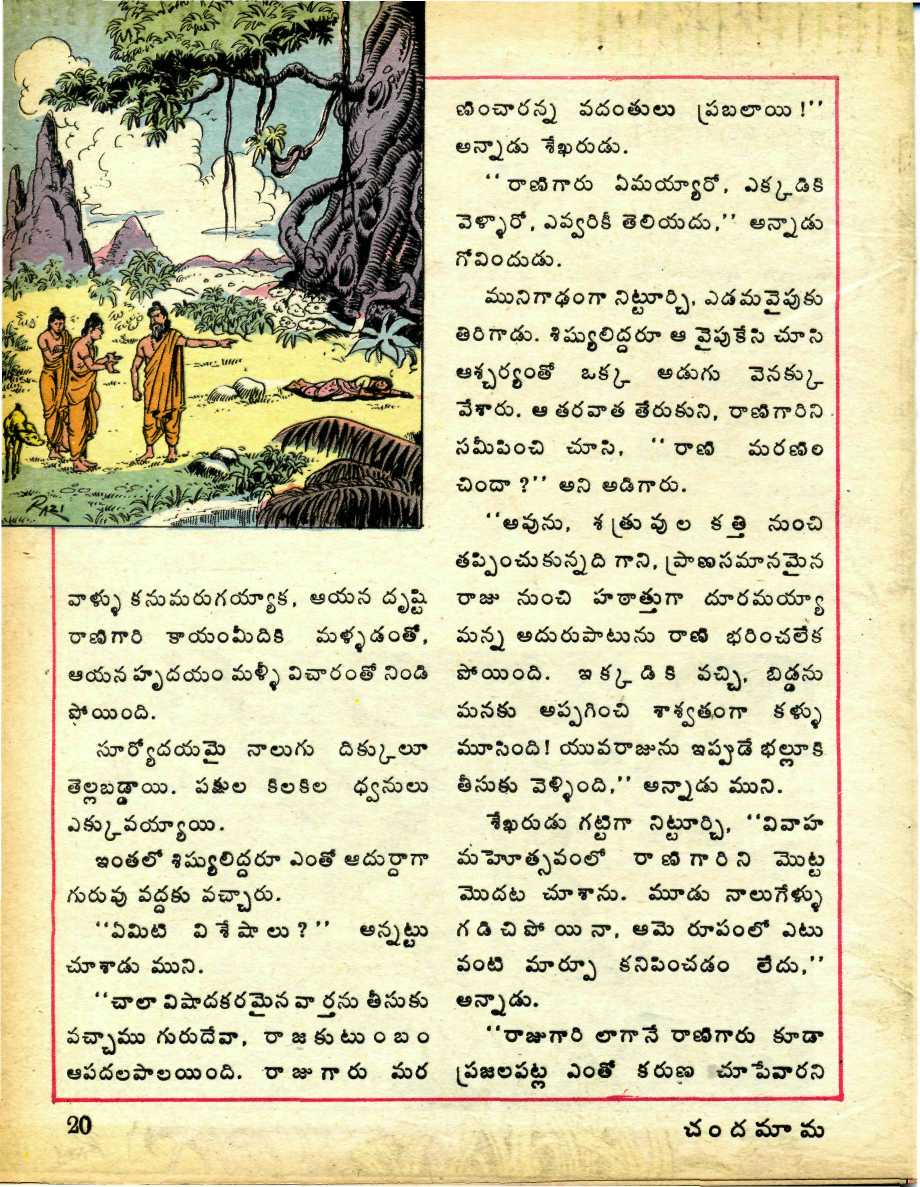 RAZI
వాళ్ళు కనుమరుగయ్యాక, ఆయన దృష్టి
రాణిగారి కాయంమీదికి మళ్ళడంతో,
ఆయన హృదయం మళ్ళీ విచారంతో నిండి
పోయింది.
సూర్యోదయమై నాలుగు దిక్కులూ
తెల్లబడ్డాయి. పక్షుల కిలకిల ధ్వనులు
ఎక్కువయ్యాయి.
ఇంతలో శిష్యులిద్దరూ ఎంతో ఆదుర్దాగా
గురువు వద్దకు వచ్చారు.
‘‘ఏమిటి విశేషాలు?’’ అన్నట్టు
చూశాడు ముని.
‘‘చాలా విషాదకరమైన వార్తను తీసుకు
వచ్చాము గురుదేవా, రాజకుటుంబం
ఆపదలపాలయింది. రాజుగారు మర
ణించారన్న వదంతులు ప్రబలాయి!’’
అన్నాడు శేఖరుడు.
‘‘రాణిగారు ఏమయ్యారో, ఎక్కడికి
వెళ్ళారో, ఎవ్వరికీ తెలియదు,’’ అన్నాడు
గోవిందుడు.
మునిగాఢంగా నిట్టూర్చి, ఎడమవైపుకు
తిరిగాడు. శిష్యులిద్దరూ ఆ వైపుకేసి చూసి
ఆశ్చర్యంతో ఒక్క అడుగు వెనక్కు
వేశారు. ఆ తరవాత తేరుకుని, రాణిగారిని
సమీపించి చూసి, ‘‘రాణి మరణిం
చిందా?’’ అని అడిగారు.
‘‘అవును, శత్రువుల కత్తి నుంచి
తప్పించుకున్నది గాని, ప్రాణసమానమైన
రాజు నుంచి హఠాత్తుగా దూరమయ్యా
మన్న అదురుపాటును రాణి భరించలేక
పోయింది. ఇక్కడికి వచ్చి, బిడ్డను
మనకు అప్పగించి శాశ్వతంగా కళ్ళు
మూసింది! యువరాజును ఇప్పుడే భల్లూకి
తీసుకు వెళ్ళింది,’’ అన్నాడు ముని.
శేఖరుడు గట్టిగా నిట్టూర్చి, ‘‘వివాహ
మహెూత్సవంలో రాణిగారిని మొట్ట
మొదట చూశాను. మూడు నాలుగేళ్ళు
గడిచిపోయినా, ఆమె రూపంలో ఎటు
వంటి మార్పూ కనిపించడం లేదు,’’
అన్నాడు.
‘‘రాజుగారి లాగానే రాణిగారు కూడా
ప్రజలపట్ల ఎంతో కరుణ చూపేవారని
20
చందమామ